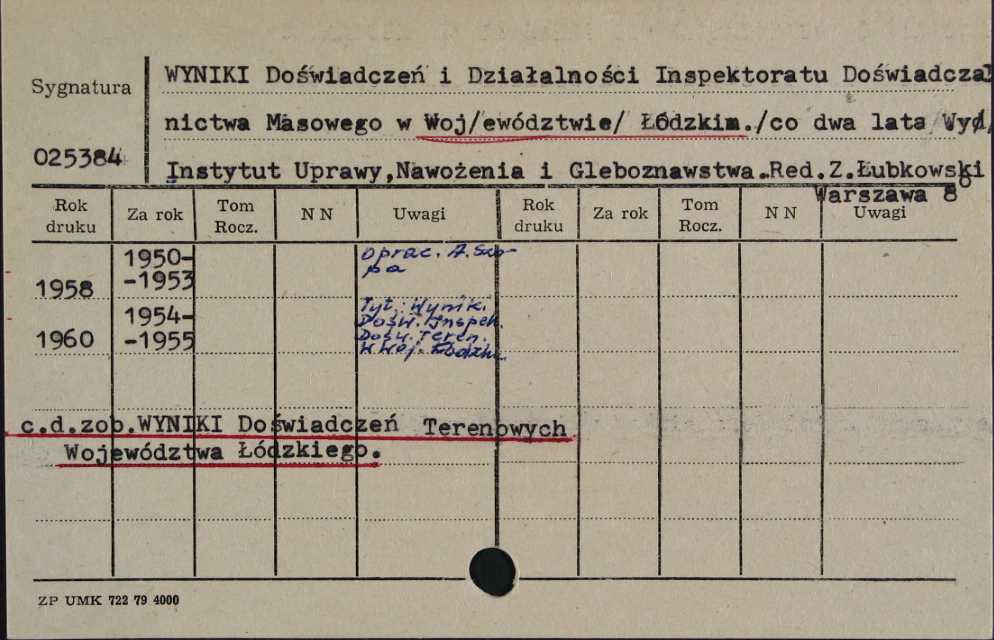 WYNIKI Doświadczeń i Działalności Inspektoratu Doświadczal
Sygnatura
nictwa Masowego w Woj/ewództwie/ Łódzkim./co dwa lata Wyd/
025384
Instytut Uprawy,Nawożenia i Gleboznawstwa.Red.Z.Łubkowski
Warszawa 8°
Rok druku Za rok Tom Rocz. N N Uwagi Rok druku Za rok Tom Rocz. N N Uwagi
1950- Oprac. A.
1958 -1953
1954- Tyt.: Wyniki.
Dośw. Inspek.
1960 -1955 Dośw. Teren.
w Woj. Łódzki
c.d.zob.WYNIKI Doświadczeń Terenowych
Województwa Łódzkiego.
ZP UMK 722 79 4000